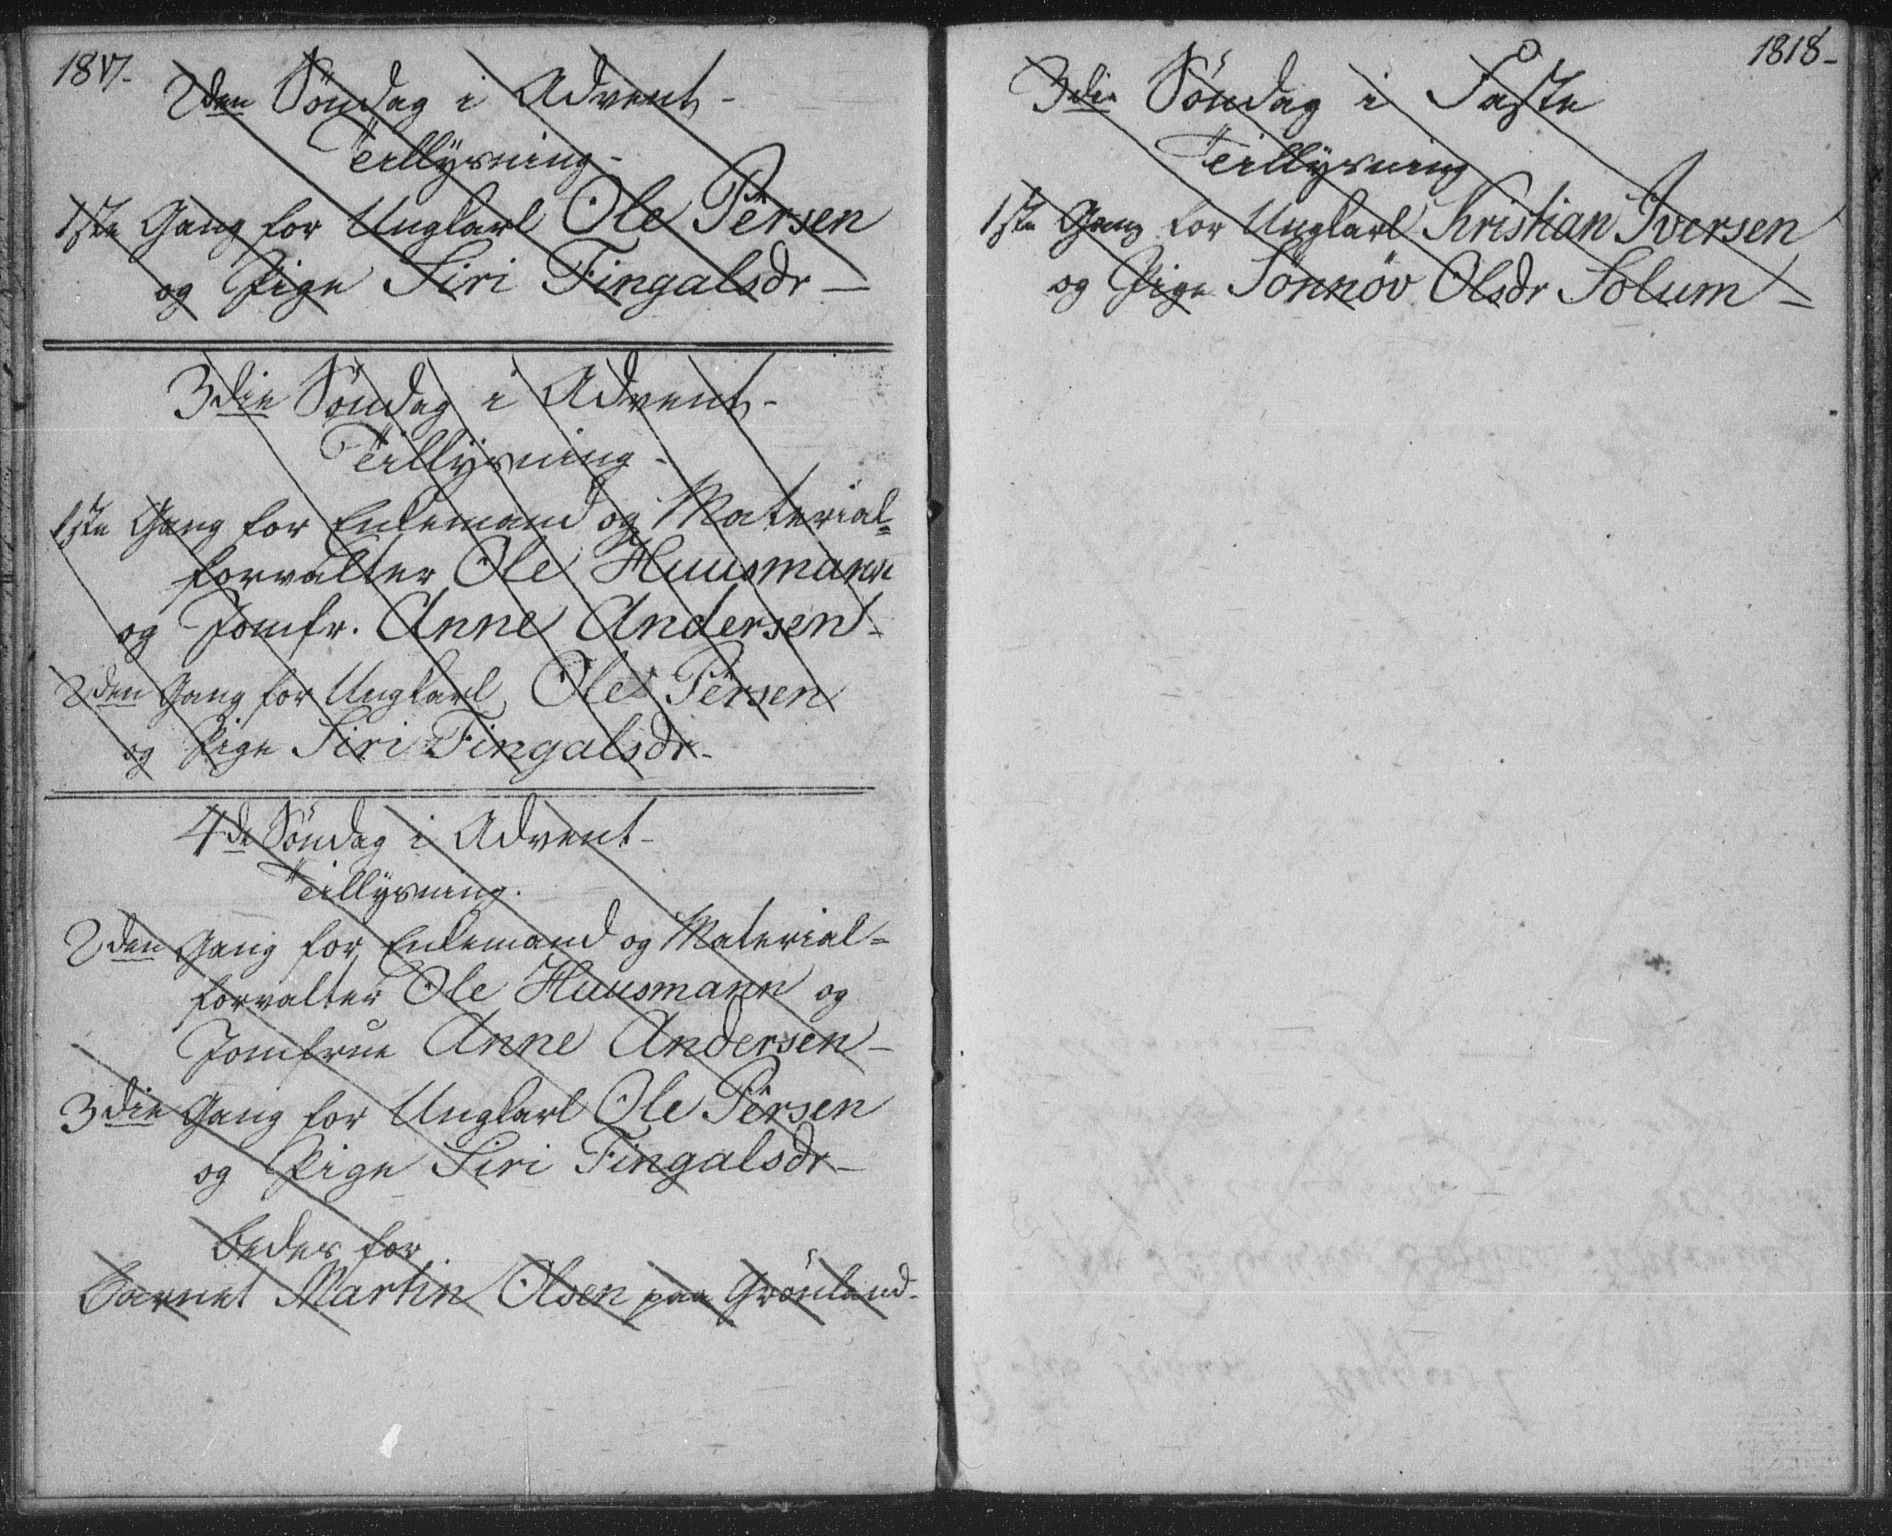 1817.
2den Søndag i Advent -
Tillysning -
1ste Gang for Ungkarl Ole Persen
og Pige Siri Fingalsdr -
3die Søndag i Advent -
Tillysning -
1ste Gang for Enkemand og Material-
forvalter Ole Huusmann
og Jomfr. Anne Andersen -
2den Gang for Ungkarl Ole Persen
og Pige Siri Fingalsdr -
4de Søndag i Advent -
Tillysning.
2den Gang for Enkemand og Material=
forvalter Ole Huusmann og
Jomfrue Anne Andersen -
3die Gang for Ungkarl Ole Persen
og Pige Siri Fingalsdr -
Bedes for
Barnet Martin Olsen paa Grønland -
1818 -
3die Søndag i Faste
Tillysning
1ste Gang for Ungkarl Kristian Iversen
og Pige Sönnöv Olsdr Solum -